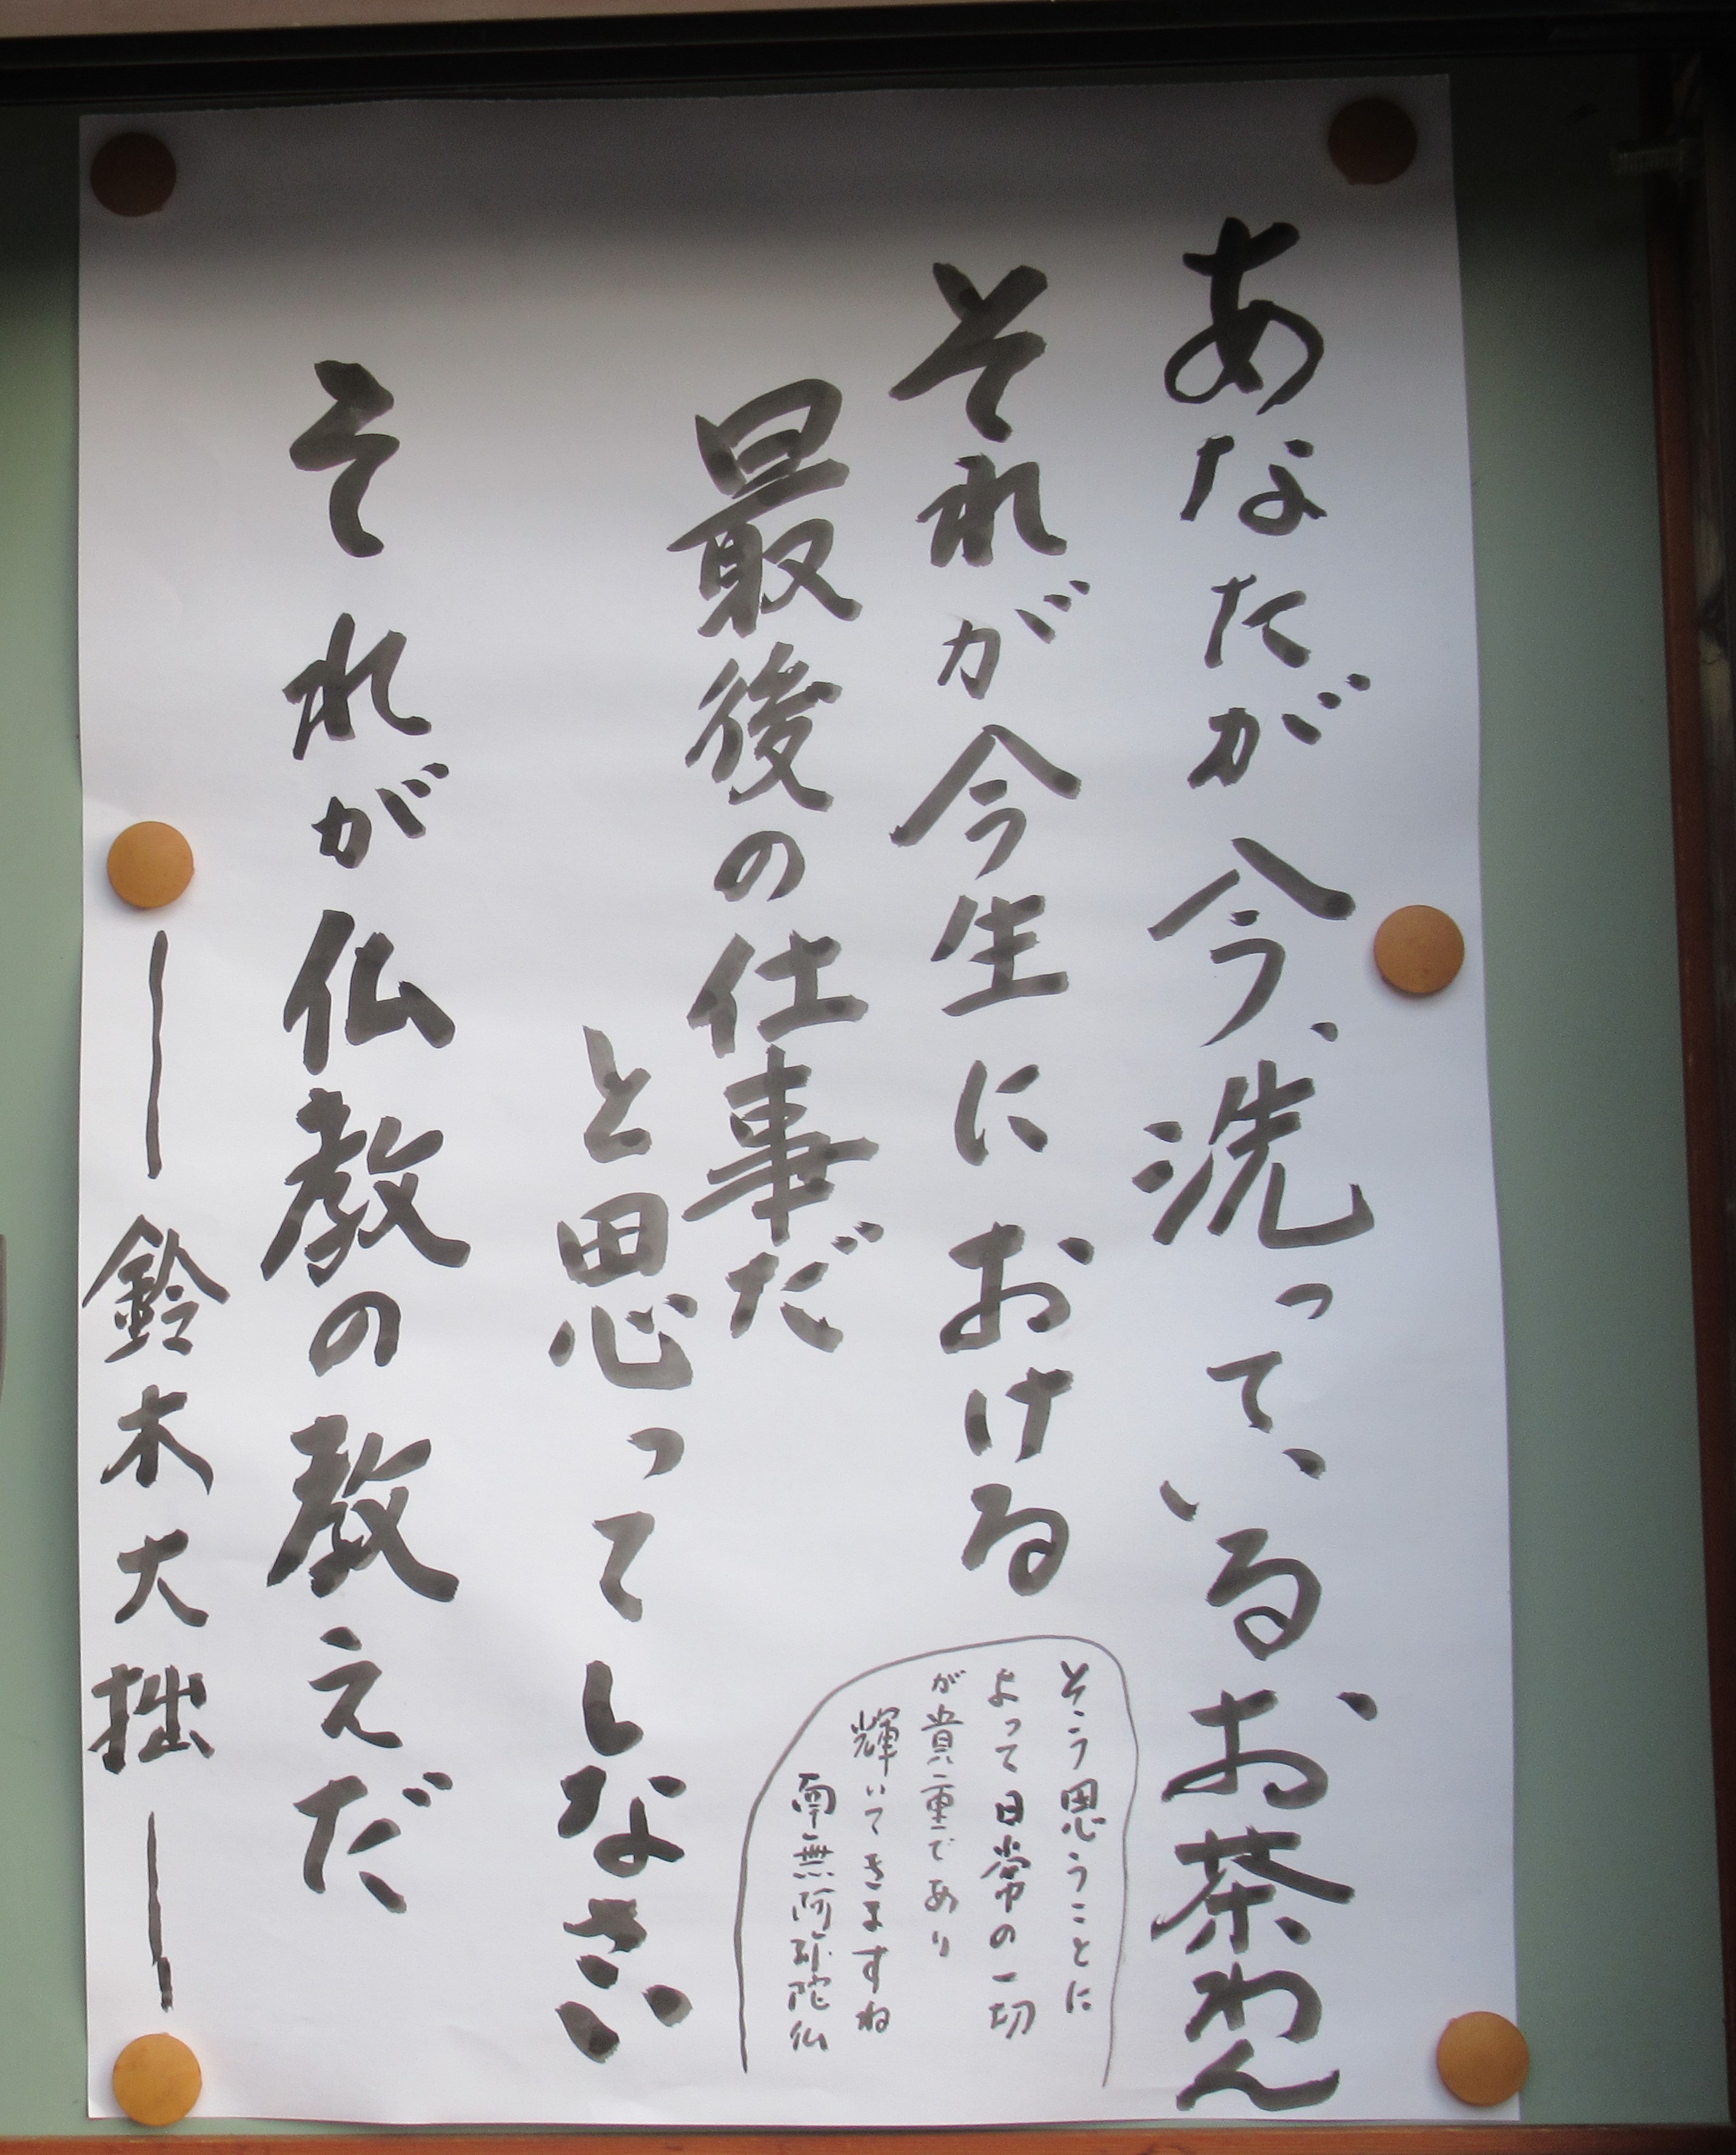 あなたが今、洗って、いるお茶わん
それが今生における
最後の仕事だ
と思ってしなさい
それが仏教の教えだ
― 鈴木大拙 ―
そう思うことに
よって日常の一切
が貴重であり
輝いてきますね
南無阿弥陀仏